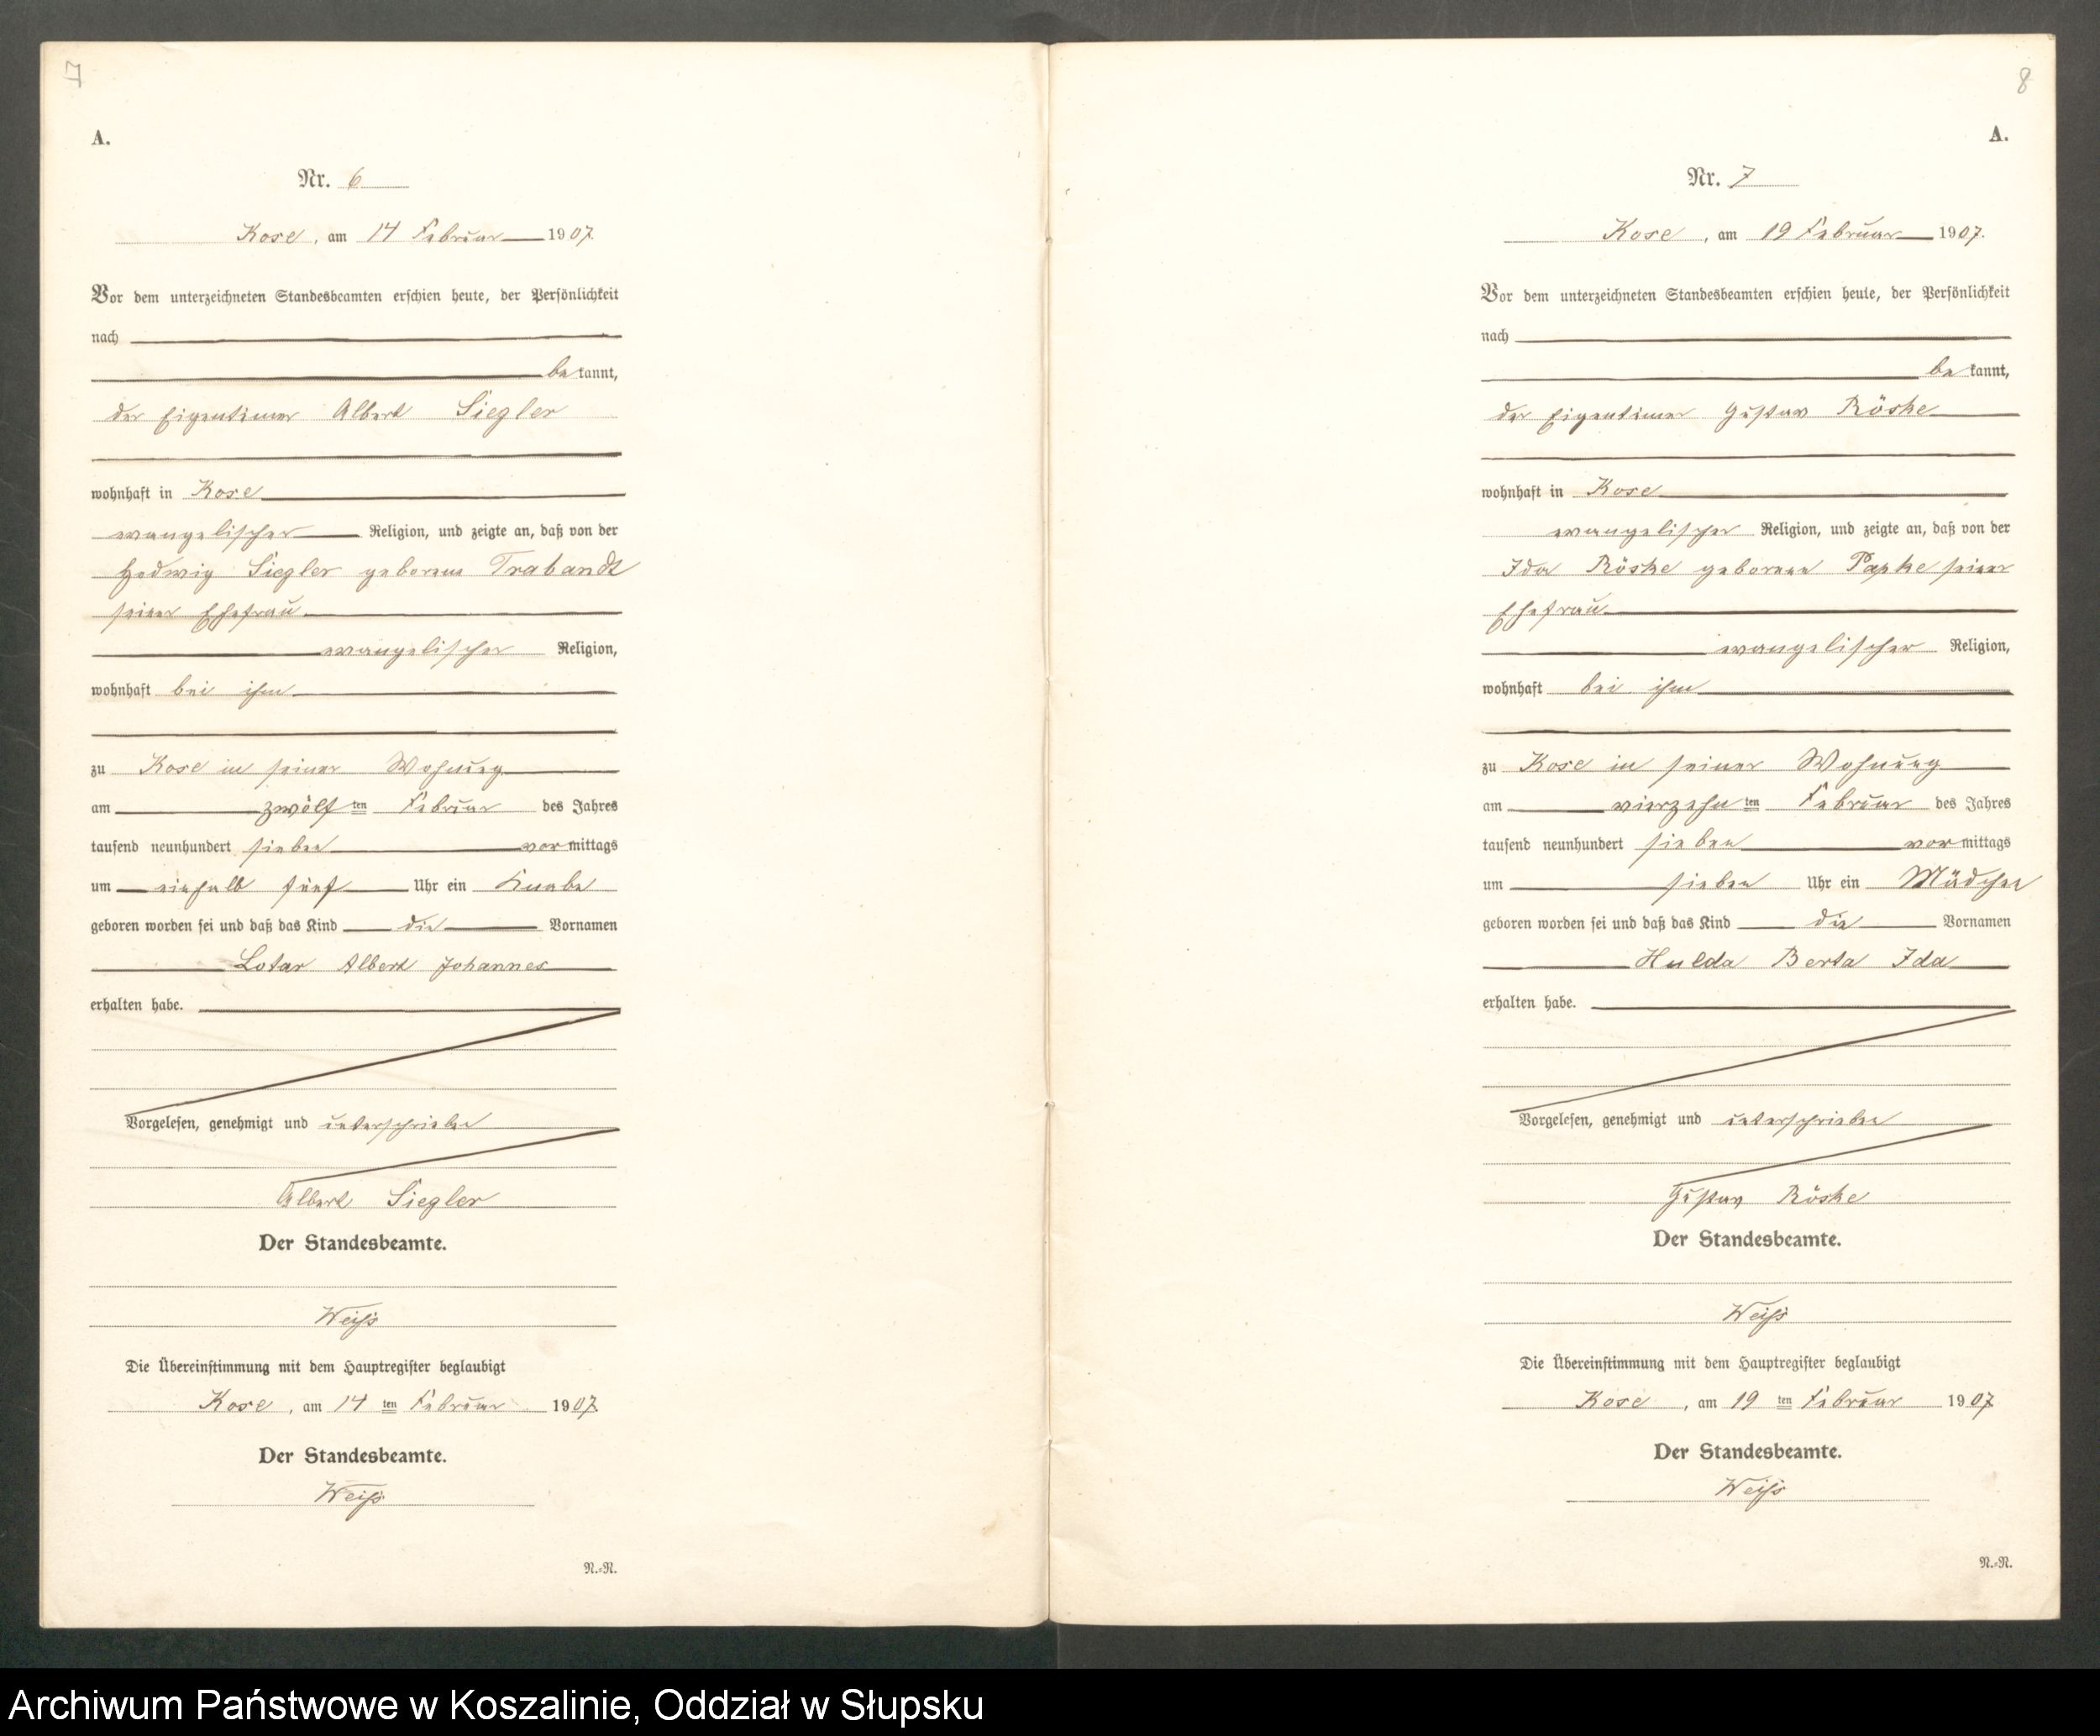 7
A.
Nr. 6
Kose, am 14 Februar 1907.
Vor dem unterzeichneten Standesbeamten erschien heute, der Persönlichkeit
nach
bekannt,
der Eigentümer Albert Siegler
wohnhaft in Kose
evangelischer Religion, und zeigte an, daß von der
Hedwig Siegler geborene Trabandt
seiner Ehefrau
evangelischer Religion,
wohnhaft bei ihm
zu Kose in seiner Wohnung
am zwölf ten Februar des Jahres
tausend neunhundert sieben vormittags
um einhalb fünf Uhr ein Knabe
geboren worden sei und daß das Kind die Vornamen
Lotar Albert Johannes
erhalten habe.
Vorgelesen, genehmigt und unterschrieben
Albert Siegler
Der Standesbeamte.
Weiß
Die Übereinstimmung mit dem Hauptregister beglaubigt
Kose, am 14 ten Februar 1907
Der Standesbeamte.
Weiß
N.-N.
8
A.
Nr. 7
Kose, am 19 Februar 1907.
Vor dem unterzeichneten Standesbeamten erschien heute, der Persönlichkeit
nach
bekannt,
der Eigentümer Gustav Röske
wohnhaft in Kose
evangelischer Religion, und zeigte an, daß von der
Ida Röske geborenen Papke seiner
Ehefrau
evangelischer Religion,
wohnhaft bei ihm
zu Kose in seiner Wohnung
am vierzehn ten Februar des Jahres
tausend neunhundert sieben vormittags
um sieben Uhr ein Mädchen
geboren worden sei und daß das Kind die Vornamen
Hulda Berta Ida
erhalten habe.
Vorgelesen, genehmigt und unterschrieben
Gustav Röske
Der Standesbeamte.
Weiß
Die Übereinstimmung mit dem Hauptregister beglaubigt
Kose, am 19 ten Februar 1907
Der Standesbeamte.
Weiß
N.-N.
Archiwum Państwowe w Koszalinie, Oddział w Słupsku